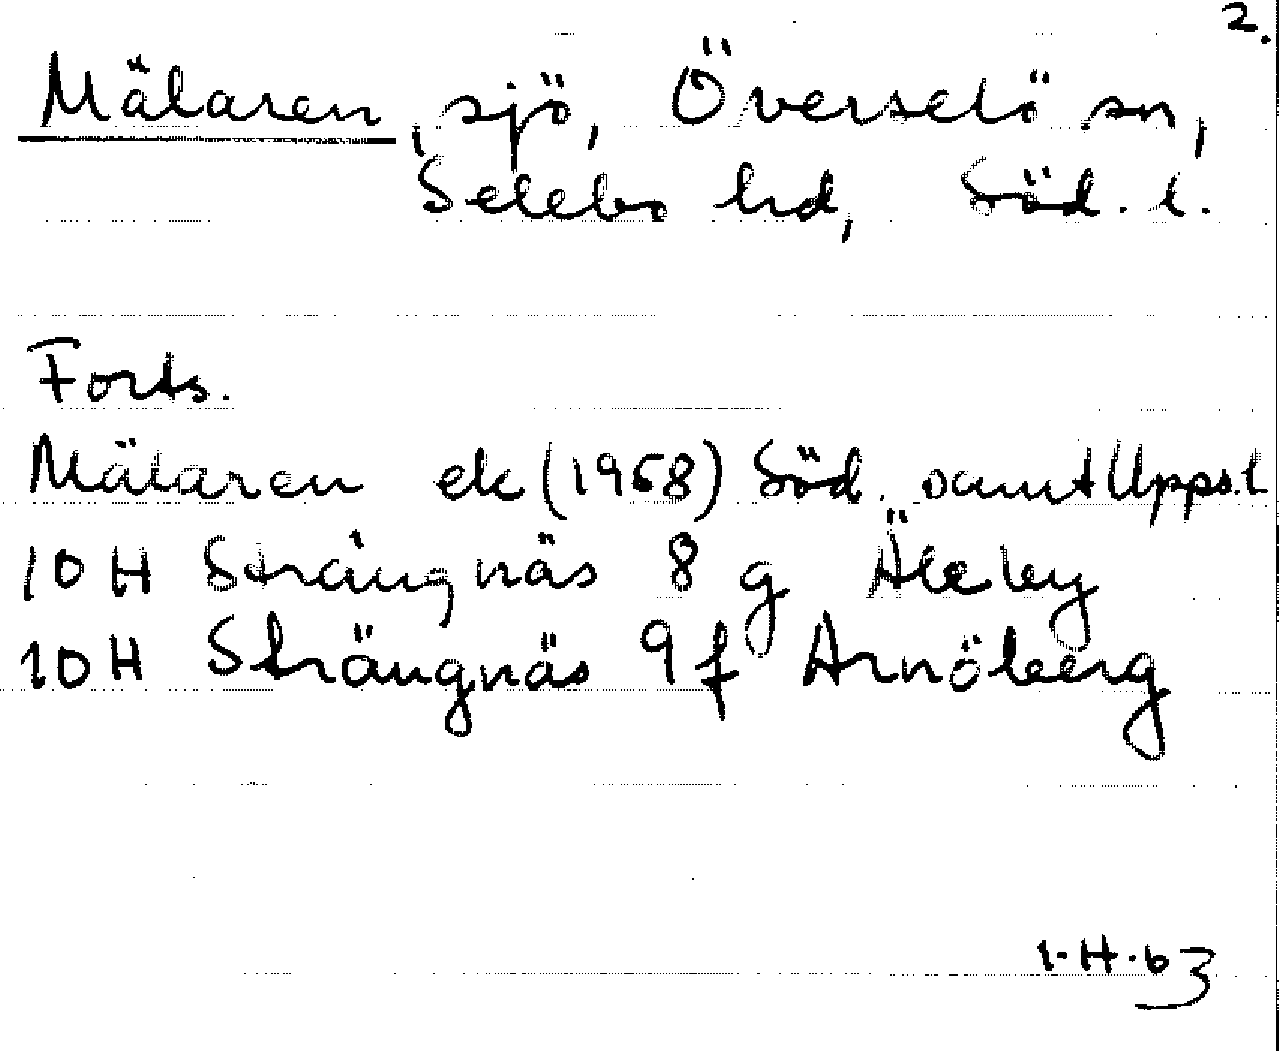 2.
Mälaren, sjö, Överselö sn,
Selebo hd, Söd. l.
Forts.
Mälaren ek (1968) Söd. samt Upps.l
10 H Strängnäs 8 g Äleby
10 H Strängnäs 9 f Arnöberg
1.H.63